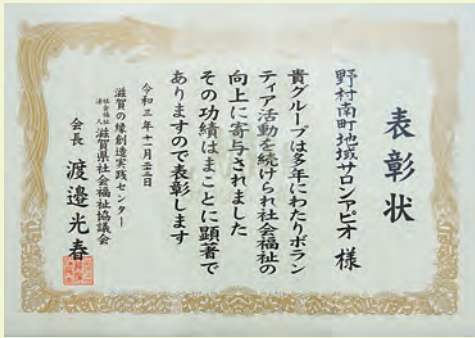 表彰状
野村南町地域サロンアピオ 様
貴グループは多年にわたりボラン
ティア活動を続けられ社会福祉の
向上に寄与されました
その功績はまことに顕著で
ありますので表彰します
令和三年十一月二十二日
滋賀の縁創造実践センター
社会福祉法人 滋賀県社会福祉協議会
会長 渡邉光春